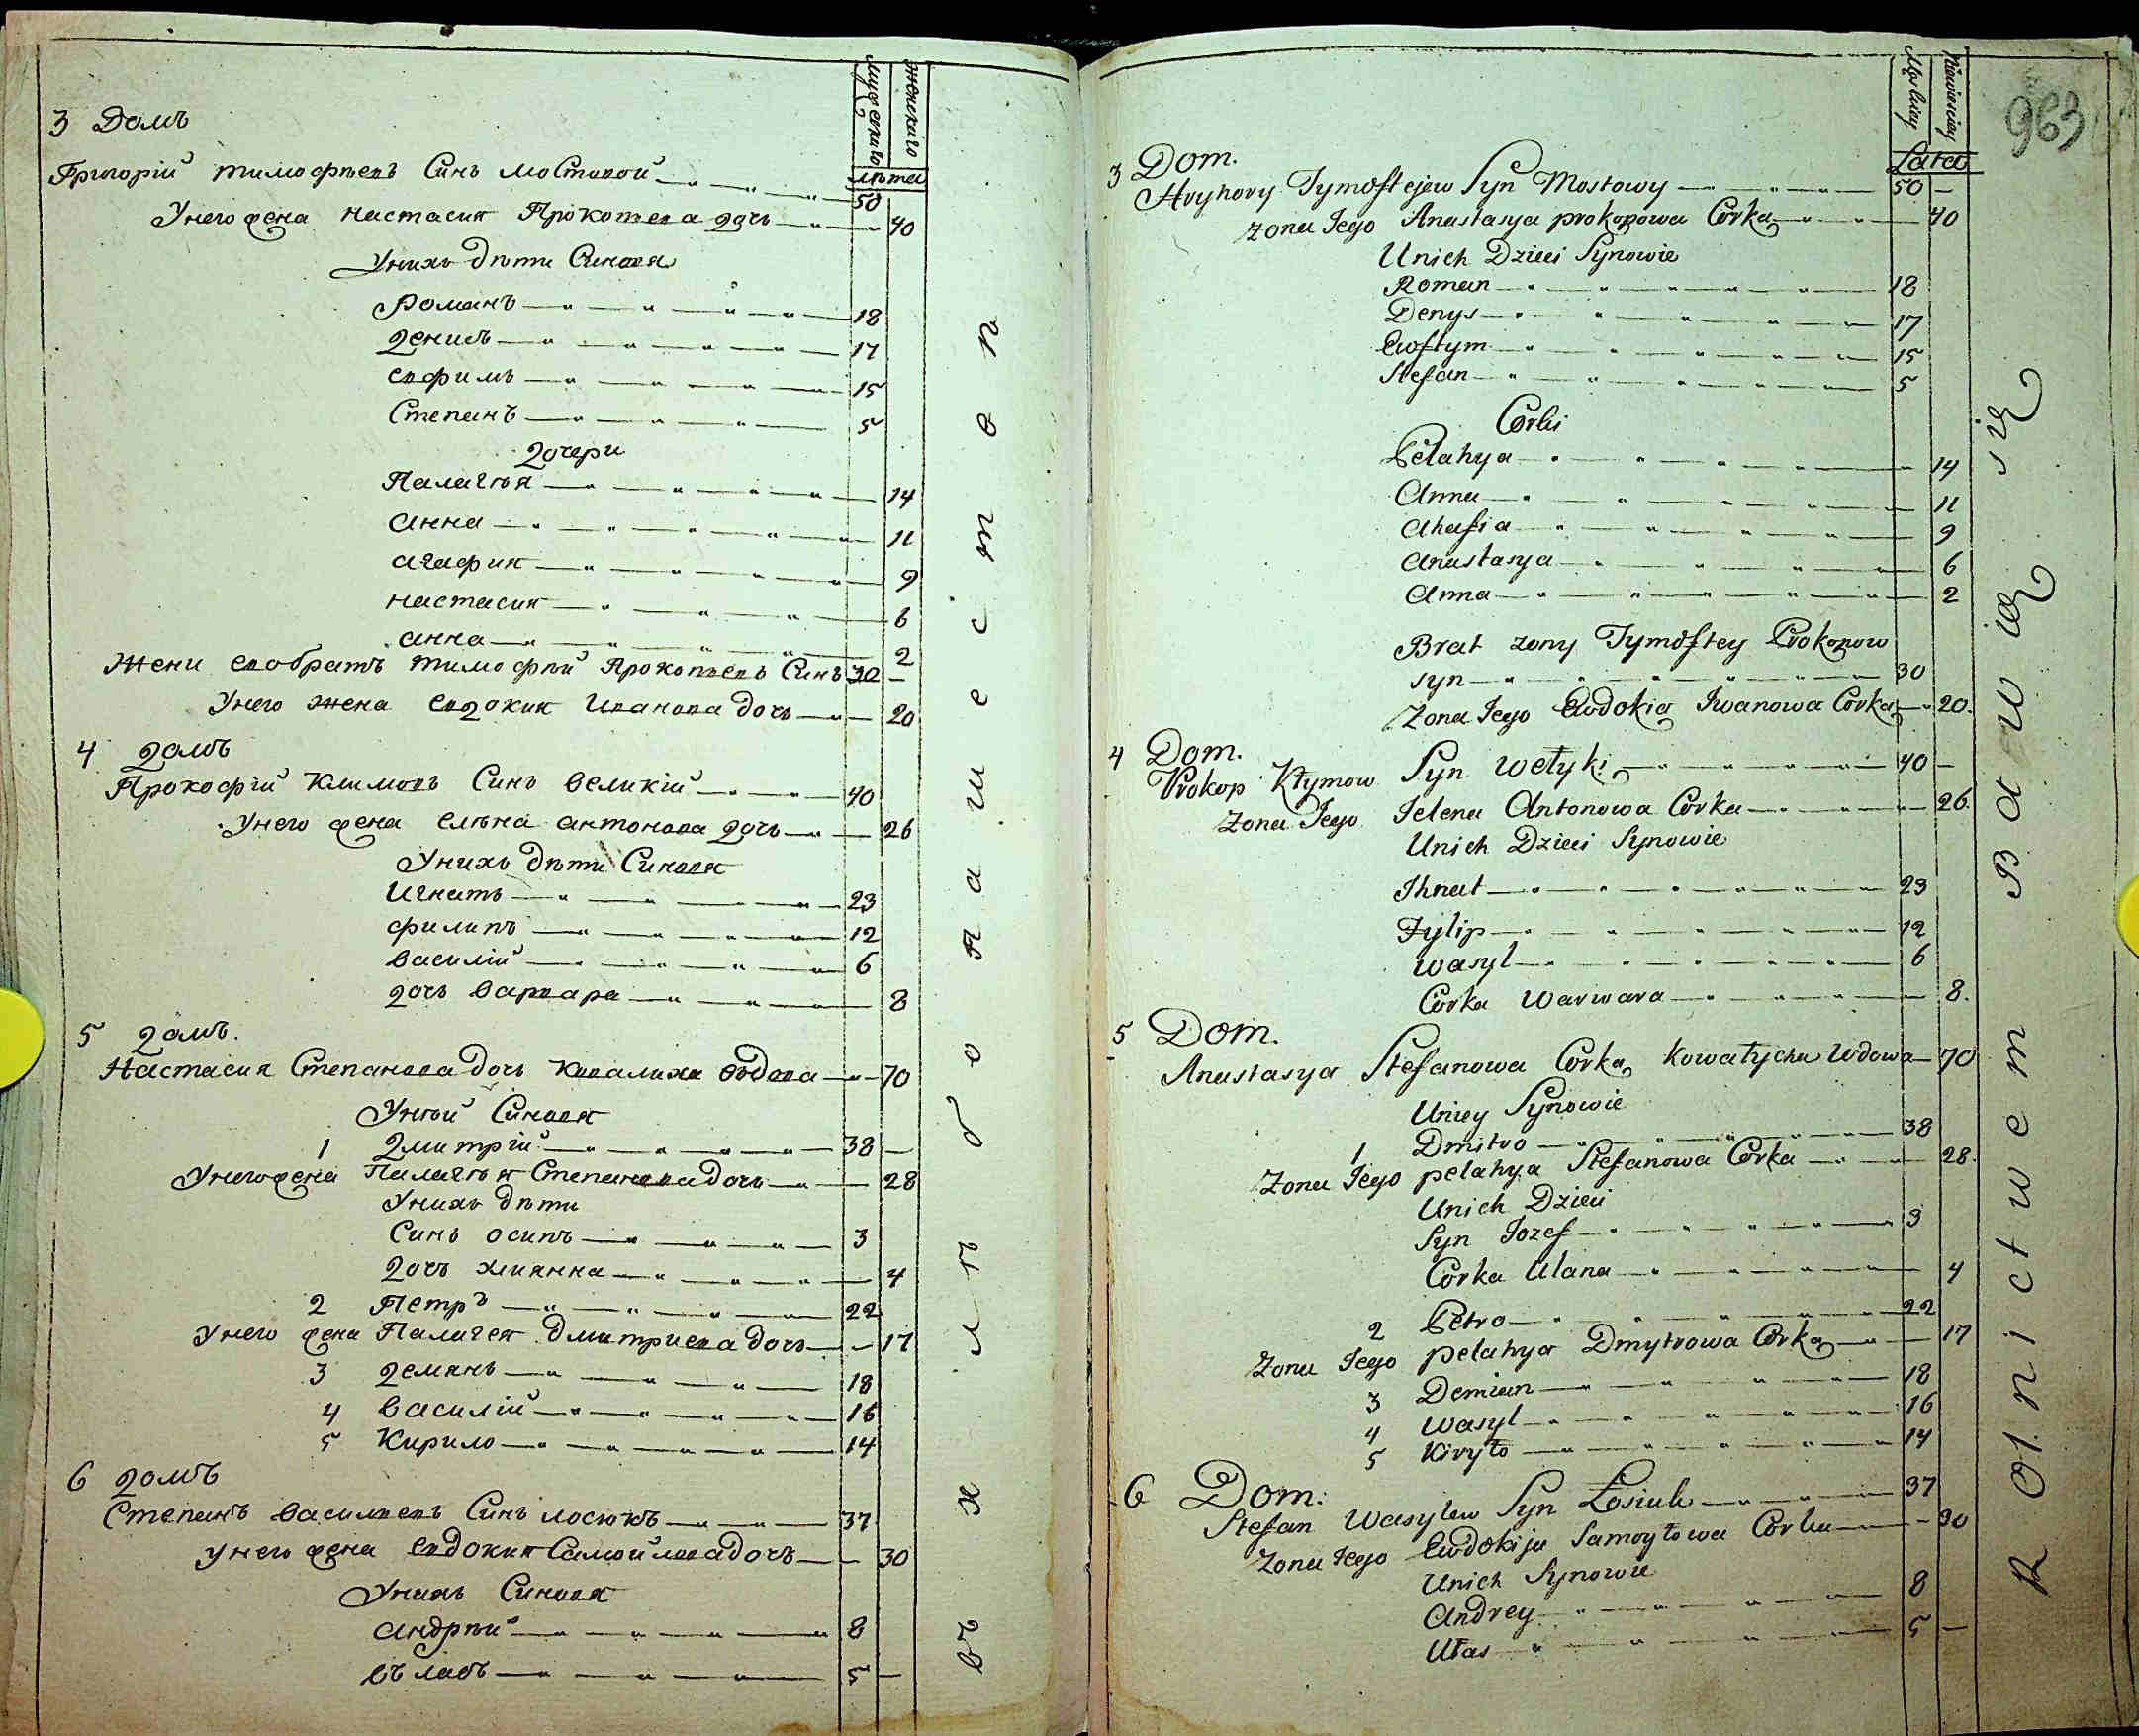 мужескаго
женскаго
лѣта
3 Домъ
Григорій тимофѣевъ Синъ мостовой 50
Унего жена настасия Прокопева дочь 40
Унихъ дѣти Синовя
Романъ 18
денисъ 17
евфимъ 15
Степанъ 5
дочери
Палагѣя 14
анна 11
агафия 9
настасия 6
анна 2
Жени евобратъ тимофѣй Прокопѣевъ Синъ 30 —
Унего жена евдокия Иванова дочь 20
4 домъ
Прокофій климовъ Синъ великій 40
Унего жена елѣна антонова дочь 26
Унихъ дѣти Синовя
Игнатъ 23
филипъ 12
василій 6
дочъ варвара 8
5 домъ.
Настасия Степанова дочъ ковалиха вдова 70
Унѣй Синовя
1 дмитрій 38 —
Унего жена Палагѣя Степанова дочъ 28
Унихъ дѣти
Синъ осипъ 3
дочъ улиянна 4
2 Петръ 22
Унего жена Палагея дмитриева дочъ 17
3 демянъ 18
4 василій 16
5 Кирило 14
6 домъ
Степанъ василевъ Синъ лосюкъ 37
Унего жена евдокия Самойлова дочъ 30
Унихъ Синовя
андрѣй 8
въласъ 5 —
въ хлѣбопашеством
963
Męskiey
Niewiesciey
Lata
3 Dom.
Hryhory Tymoftejew Syn Mostowy 50 —
Zona Jego Anastasya prokopowa Corka 40
Unich Dzieci Synowie
Roman 18
Denys 17
Ewftym 15
Stefan 5
Corki
Pelahya 14
Anna 11
Ahafia 9
Anastasya 6
Anna 2
Brat zony Tymoftey Prokopow
syn 30
Zona Jego Ewdokia Iwanowa Corka 20.
4 Dom.
Prokop Kłymow Syn Wełyki 40 —
Zona Jego Jelena Antonowa Corka 26.
Unich Dzieci Synowie
Ihnat 23
Fylip 12
Wasyl 6
Corka Warwara 8.
5 Dom.
Anastasya Stefanowa Corka Kowałycha Wdowa 70
Uniey Synowie
1 Dmitro 38
Zona Jego pelahya Stefanowa Corka 28.
Unich Dzieci
Syn Jozef 3
Corka Ulana 4
2 Petro 22
Zona Jego pelahya Dmytrowa Corka 17
3 Demian 18
4 Wasyl 16
5 Kiryło 14
6 Dom:
Stefan Wasylew Syn Łosiuk 37
Zona Jego Ewdokija Samoyłowa Corka 30
Unich Synowie
Andrey 8
Ułas 5 —
Rolnictwem Bawią się